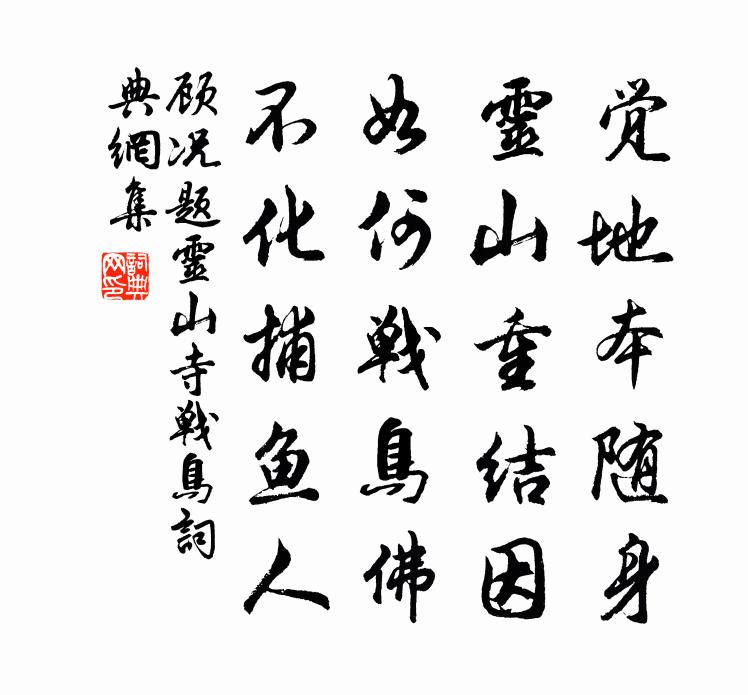 觉地本随身
靈山重结因
如何戰鳥佛
不化捕鱼人
顾况题靈山寺戰鳥詞
典網集
詞典网印